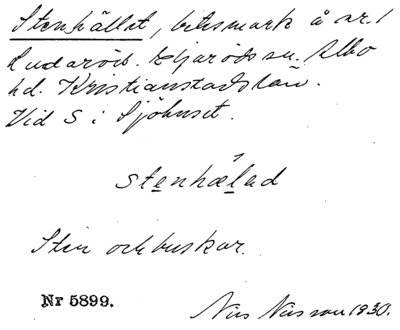 Stenhället, betesmark å nr. 1
Ludaröd. Eljaröds sn. Albo
hd. Kristianstads län.
Vid S i Sjöhuset.
stenhælad
Sten och buskar.
Nr 5899.
Nils Nilsson 1930.